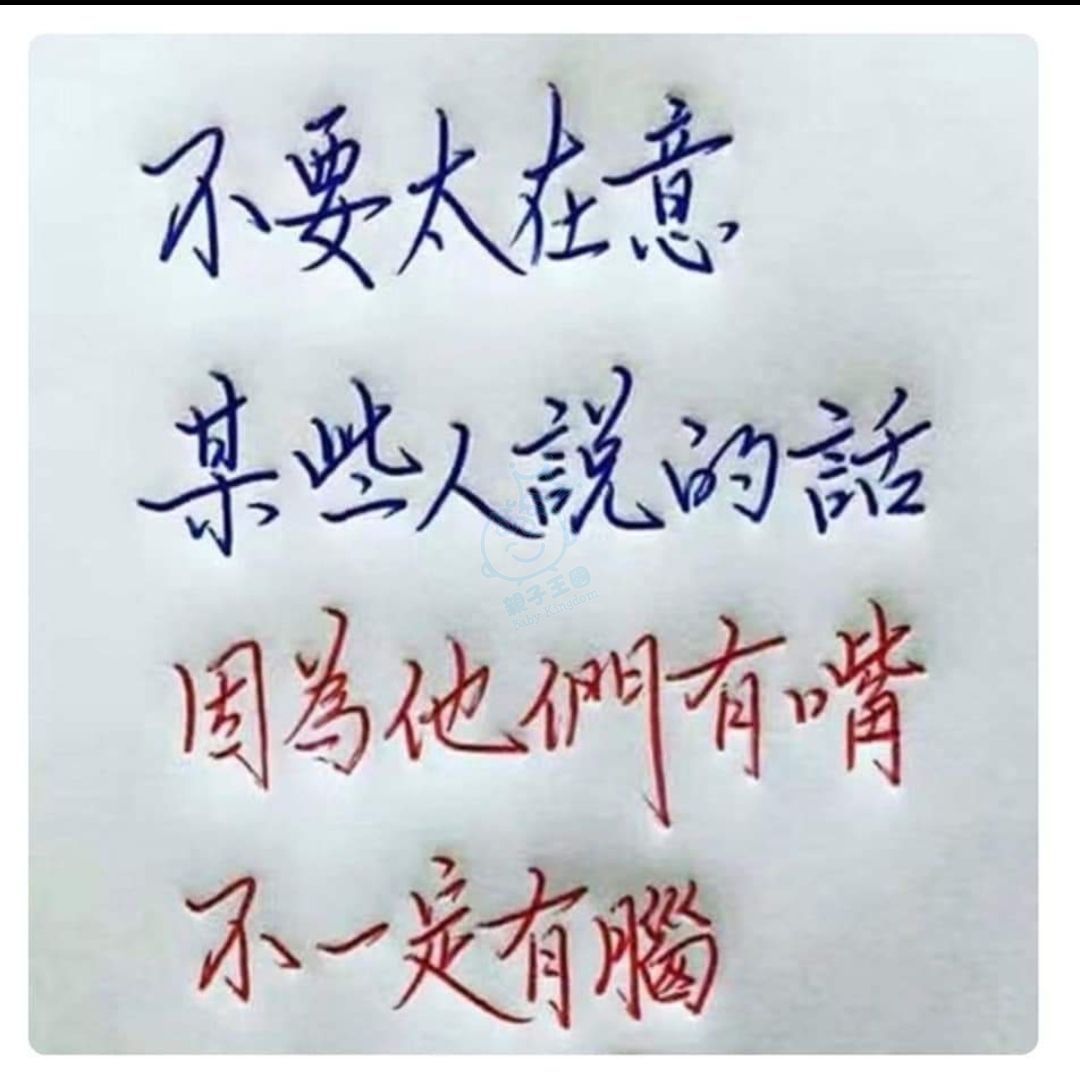 不要太在意
某些人說的話
親子王國
Baby Kingdom
因為他們有嘴
不一定有腦